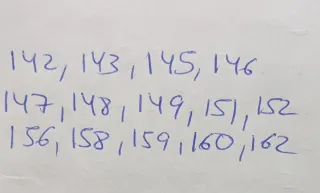 142, 143, 145, 146
147, 148, 149, 151, 152
156, 158, 159, 160, 162